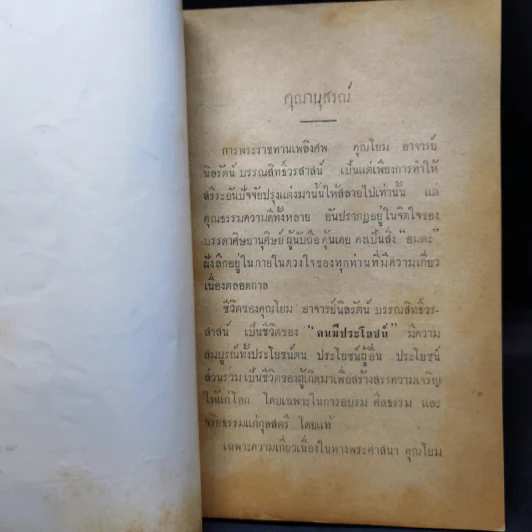 คุณานุสรณ์
การพระราชทานเพลิงศพ คุณโยม อาจารย์
นิลรัตน์ บรรณสิทธิ์วรสาสน์ เป็นแต่เพียงการทำให้
สรีระอันปัจจัยปรุงแต่งมานั้นให้สลายไปเท่านั้น แต่
คุณธรรมความดีทั้งหลาย อันปรากฏอยู่ในจิตใจของ
บรรดาศิษยานุศิษย์ ผู้นับถือ คุ้นเคย คงเป็นสิ่ง "อมตะ"
ฝังลึกอยู่ในภายในดวงใจของทุกท่านที่มีความเกี่ยว
เนื่องตลอดกาล
ชีวิตของคุณโยม อาจารย์นิลรัตน์ บรรณสิทธิ์วร-
สาสน์ เป็นชีวิตของ "คนมีประโยชน์" มีความ
สมบูรณ์ทั้งประโยชน์ตน ประโยชน์ผู้อื่น ประโยชน์
ส่วนรวม เป็นชีวิตของผู้เกิดมาเพื่อสร้างสรรความเจริญ
ให้แก่โลก โดยเฉพาะในการอบรม ศีลธรรม และ
จริยธรรมแก่กุลสตรี โดยแท้
เฉพาะความเกี่ยวเนื่องในทางพระศาสนา คุณโยม